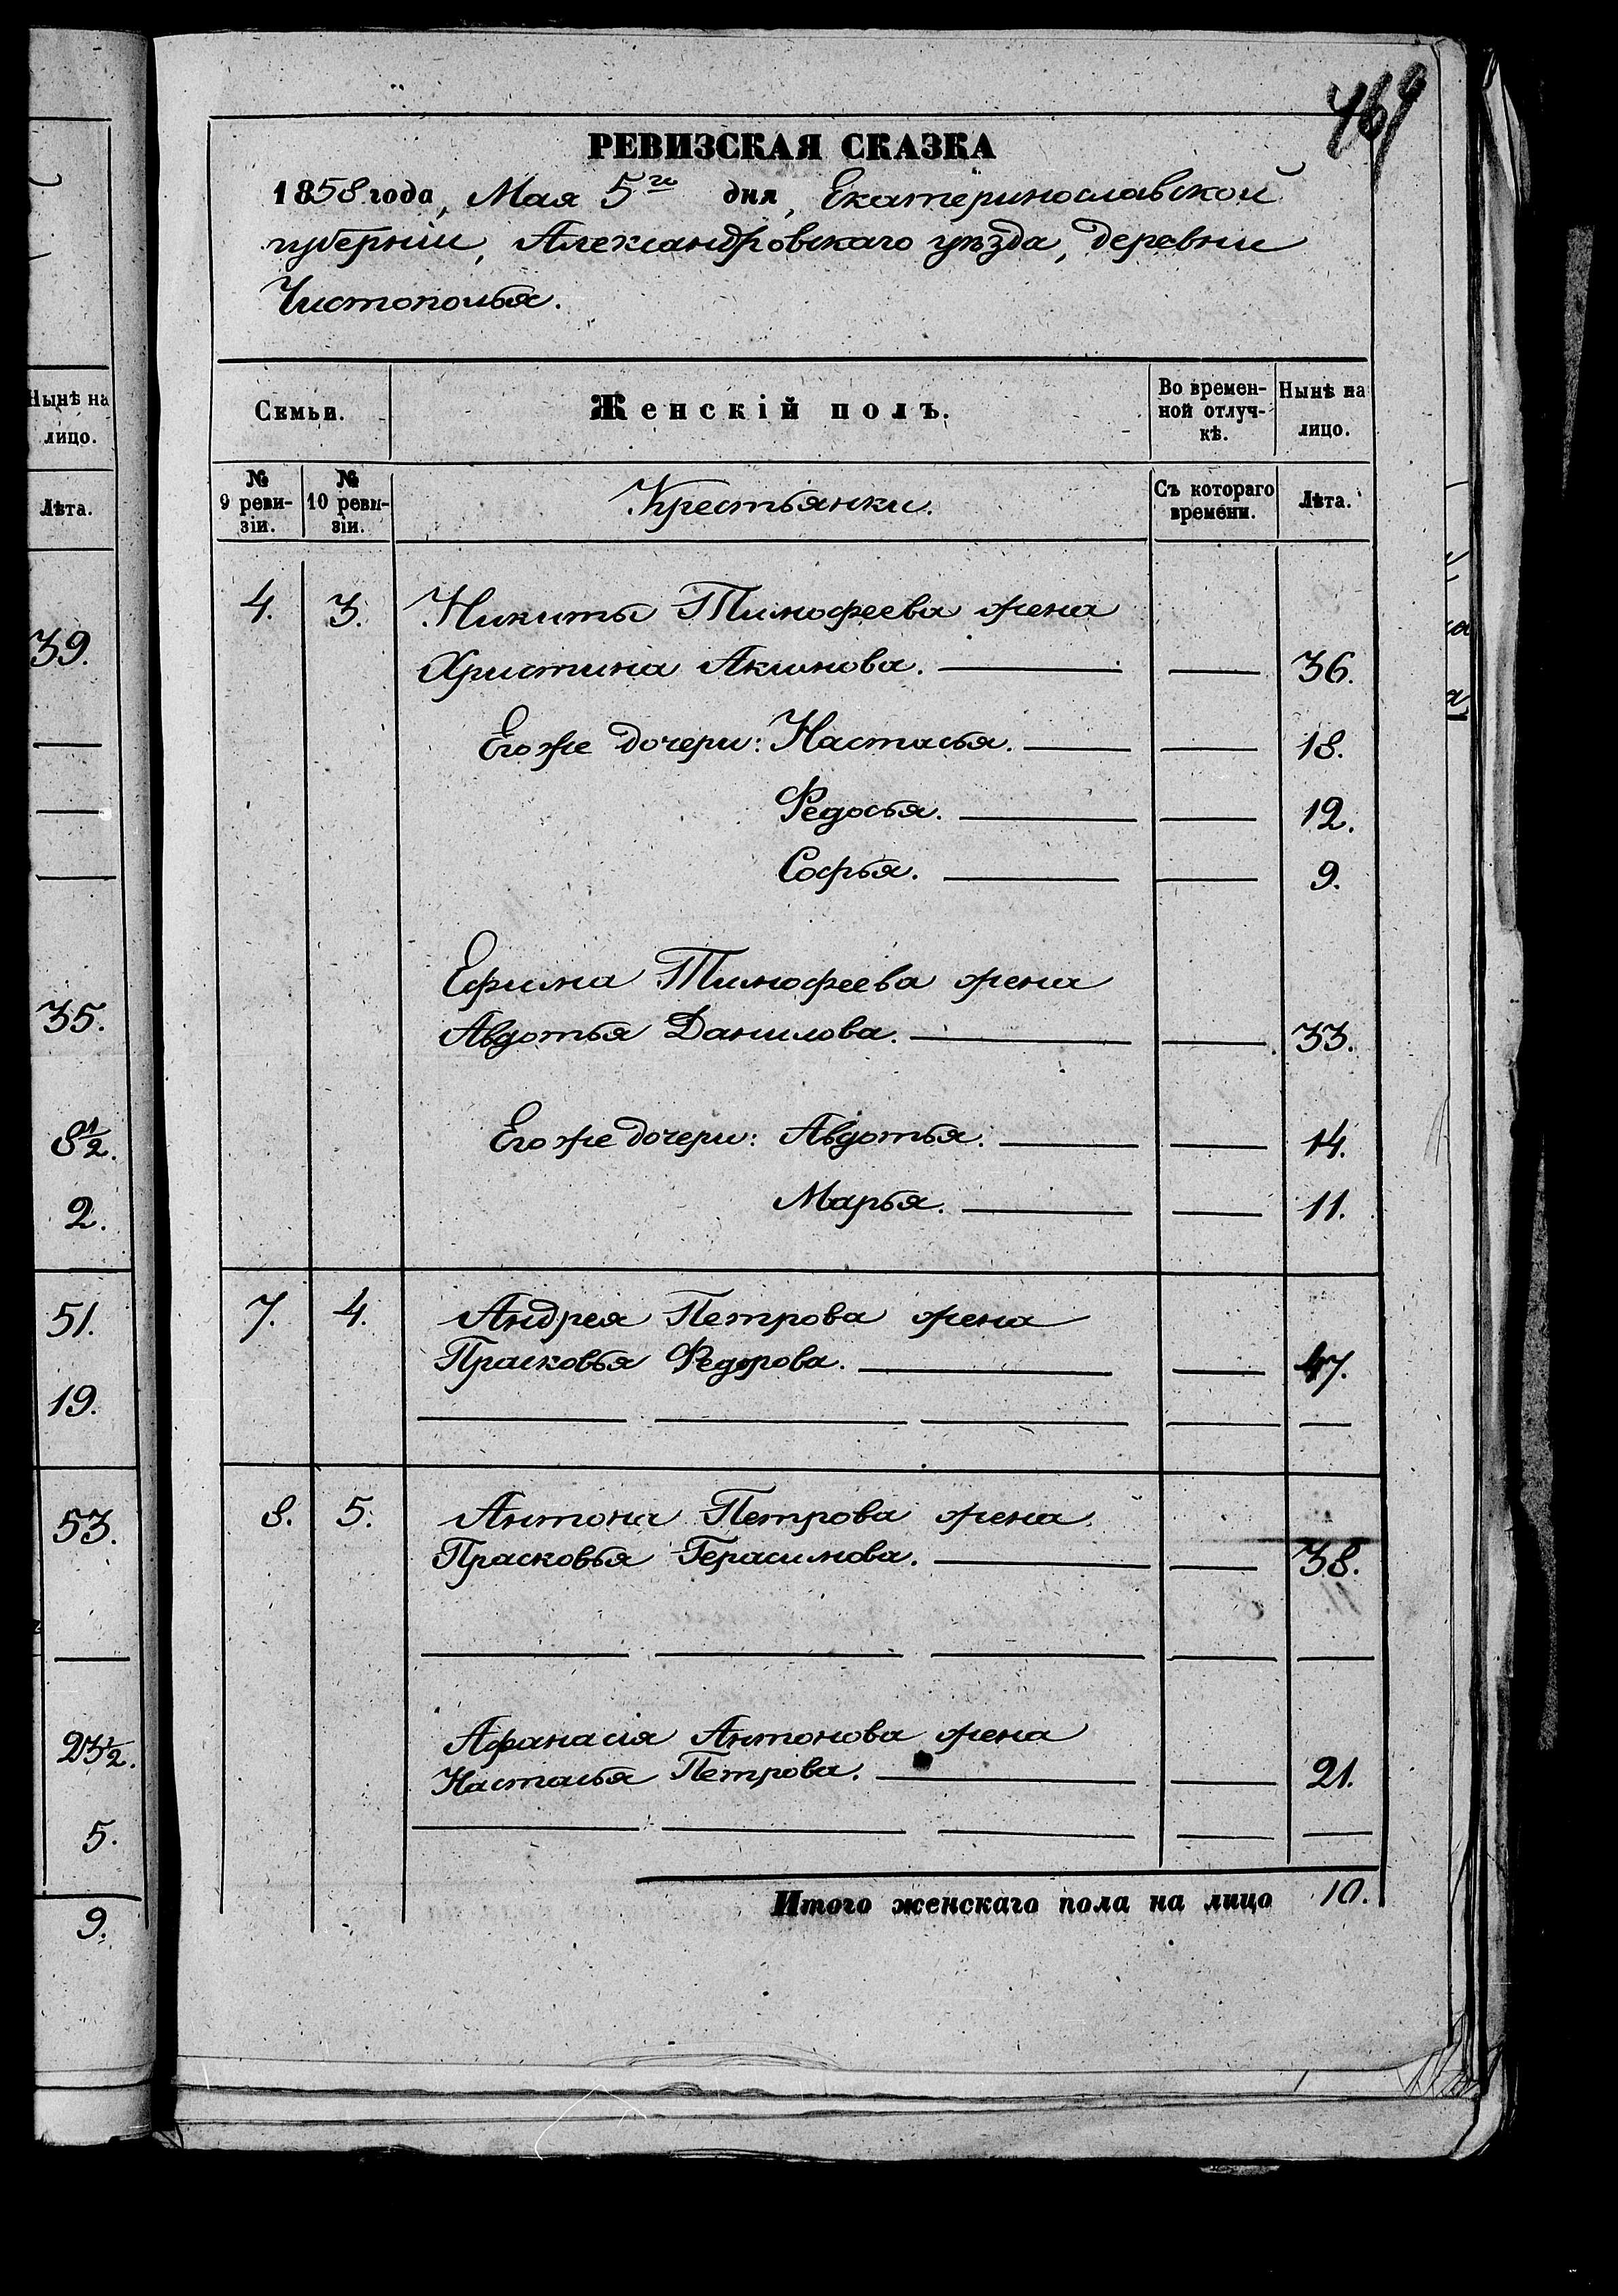 Нынѣ на
лицо.
Лѣта.
39.
35.
8 1/2.
2.
51.
19.
53.
23 1/2.
5.
9.
469
РЕВИЗСКАЯ СКАЗКА
1858 года, Мая 5го дня, Екатеринославской
губерніи, Александровскаго уѣзда, деревни
Чистополья.
Семьи. Женскій полъ. Во времен-ной отлуч-кѣ. Нынѣ на лицо.
№ 9 реви-зіи. № 10 реви-зіи. Крестьянки. Съ котораго времени. Лѣта.
4. 3. Никиты Тимофеева жена
Христина Акимова. — — 36.
Его же дочери: Настасья. — — 18.
Федосья. — — 12.
Софья. — — 9.
Ефима Тимофеева жена
Авдотья Данилова. — — 33.
Его же дочери: Авдотья. — — 14.
Марья. — — 11.
7. 4. Андрея Петрова жена
Прасковья Федорова. — — 47.
8. 5. Антона Петрова жена
Прасковья Герасимова. — — 38.
Афанасія Антонова жена
Настасья Петрова. — — 21.
Итого женскаго пола на лицо 10.